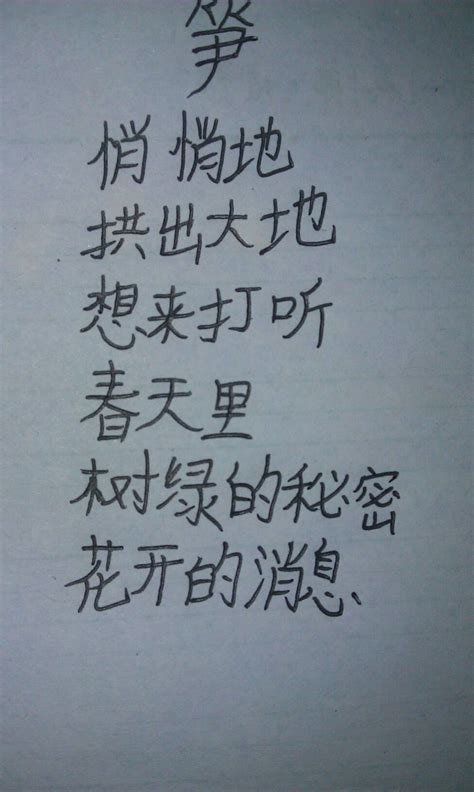 笋
悄悄地
拱出大地
想来打听
春天里
树绿的秘密
花开的消息